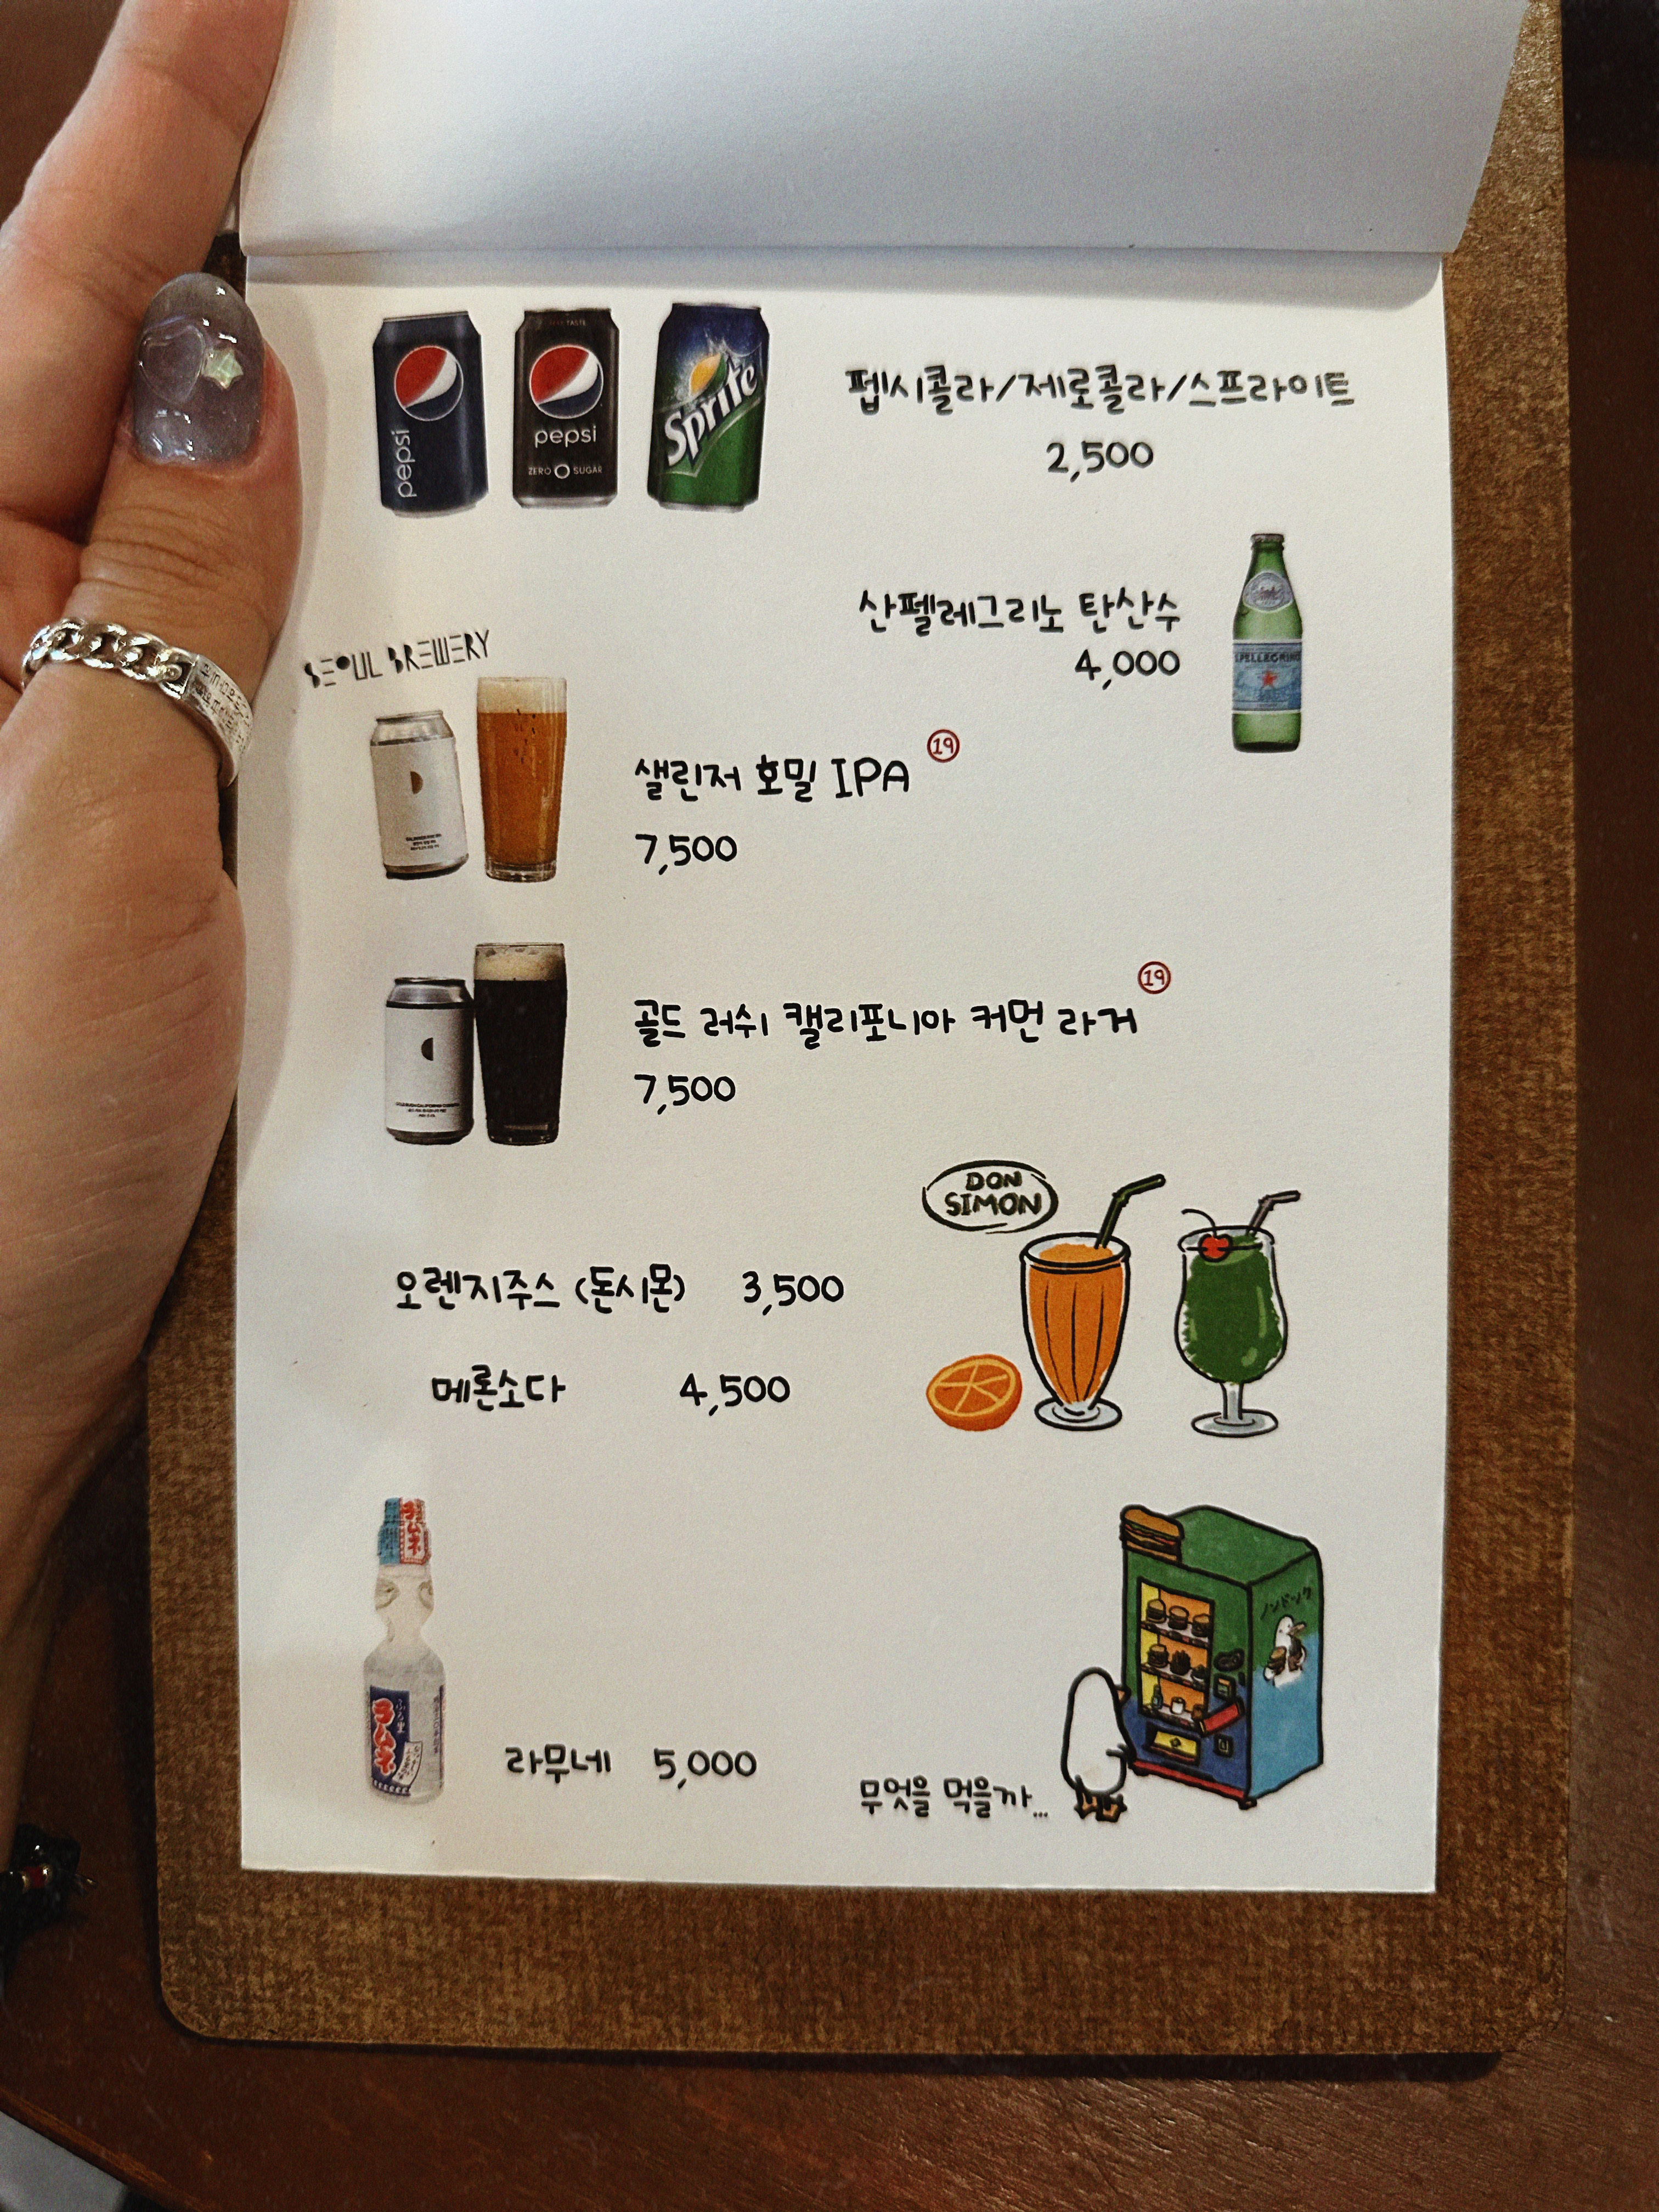 pepsi
pepsi
ZERO SUGAR
Sprite
펩시콜라/제로콜라/스프라이트
2,500
산펠레그리노 탄산수
4,000
S.PELLEGRINO
SEOUL BREWERY
샐린저 호밀 IPA 19
7,500
골드 러쉬 캘리포니아 커먼 라거 19
7,500
DON
SIMON
오렌지주스 (돈시몬) 3,500
메론소다 4,500
ラムネ
라무네 5,000
무엇을 먹을까...